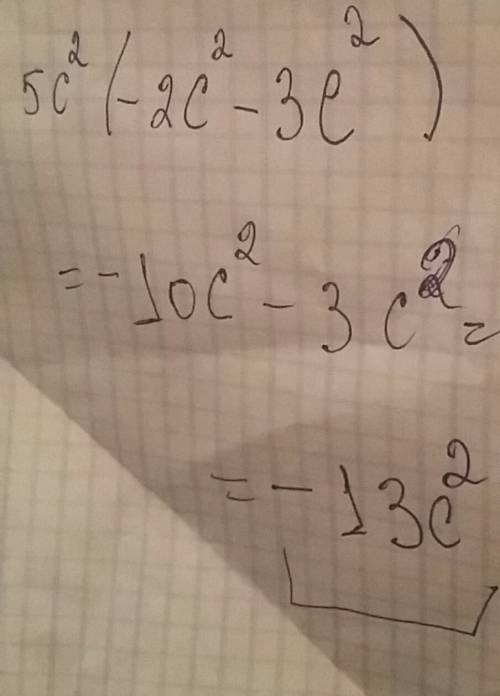 5c² (-2c² - 3c²)
= -10c² - 3c² =
= -13c²